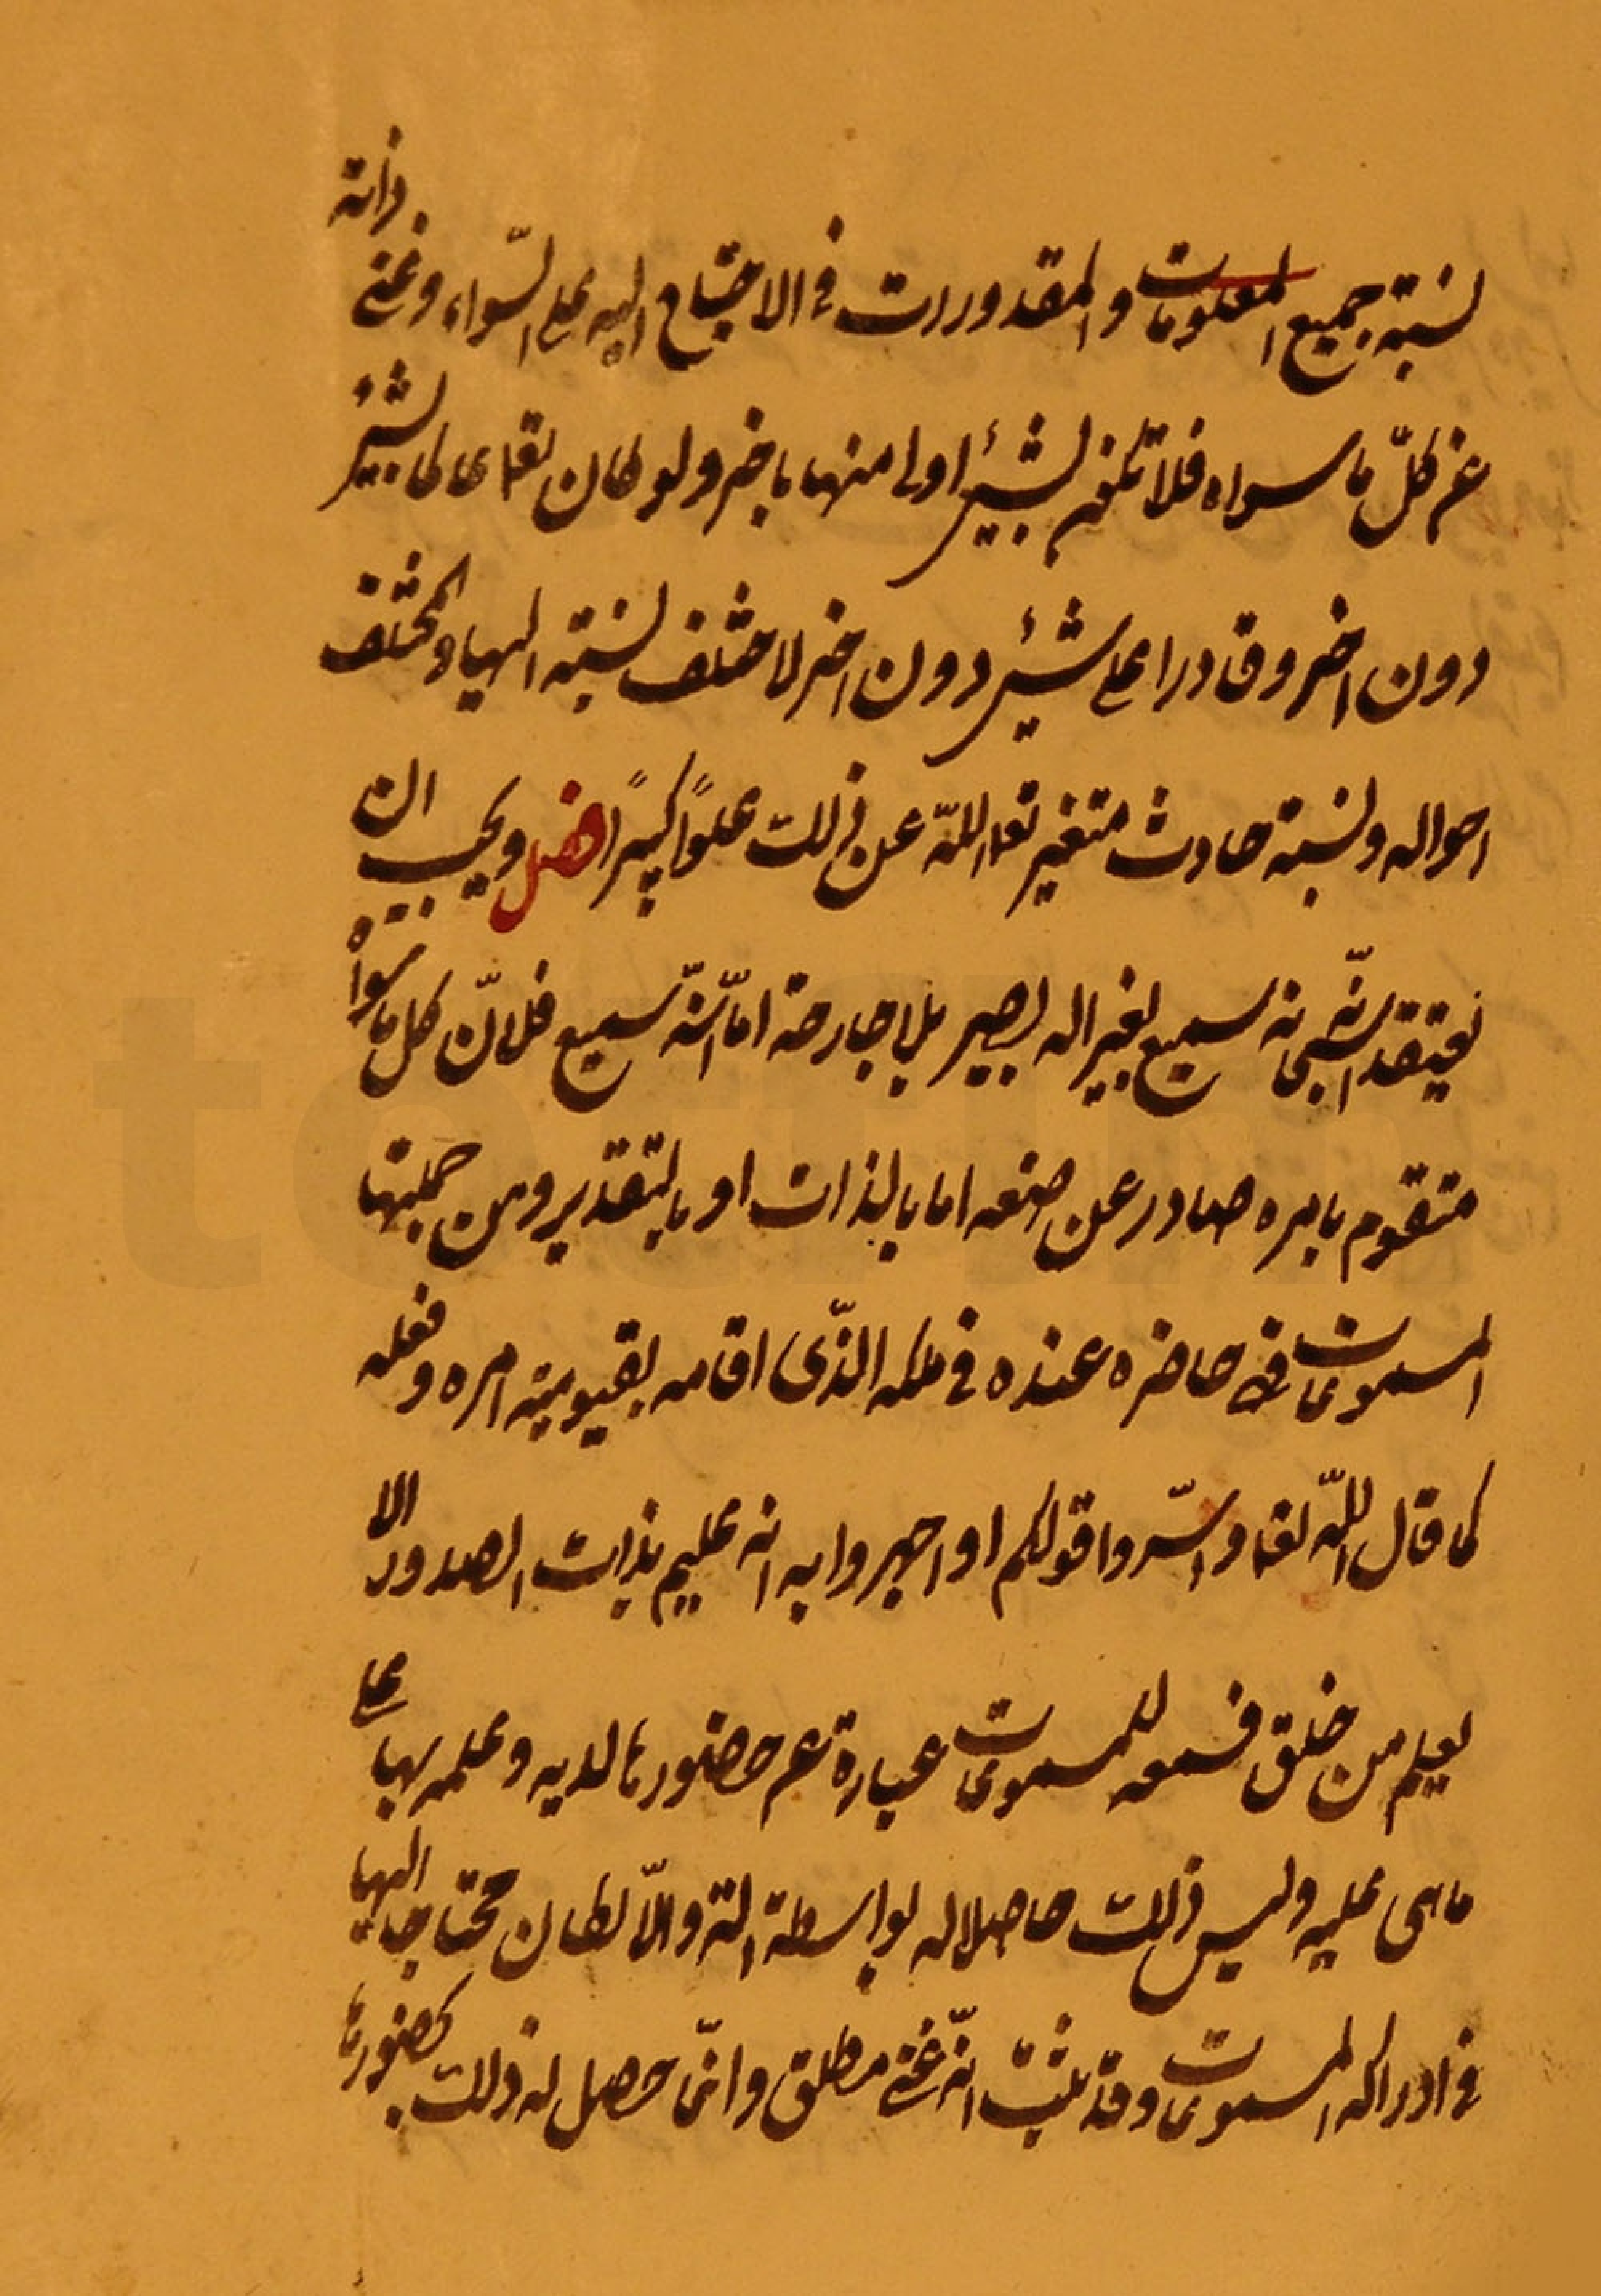 نسبة جميع المعلومات والمقدورات فى الاحتياج اليه على السّواء وغنى ذاته
عن كلّ ما سواه فلا تكون لشيئ اولى منها باخر ولو كان تعالى عالما بشيئ
دون اخر وقادرا على شيئ دون اخر لاختلف نسبته اليها والمختلف
احواله ونسبته حادث متغير تعالى اللّه عن ذلك علوًا كبيرًا فصل ويجب ان
يعتقد انّه سبحانه سميع بغير اله بصير بلا جارحة امّا انّه سميع فلانّ كل ما سواه
متقوم بامره صادر عن صنعه اما بالذات او بالتقدير ومن جملتها
المسموعات فهى حاضره عنده فى ملكه الذّى اقامه بقيومية امره وفعله
كما قال اللّه تعالى واسّروا قولكم او اجهروا به انه عليم بذات الصدور الا
يعلم من خلق فسمعه للمسموعات عبارة عن حضورها لديه وعلمه بها على
ما هى عليه وليس ذلك حاصلا له بواسطة الة والاّ لكان محتاجا اليها
فى ادراكه المسموعات وقد ثبت انّه غنى مطلق وانّما حصل له ذلك بحضورها